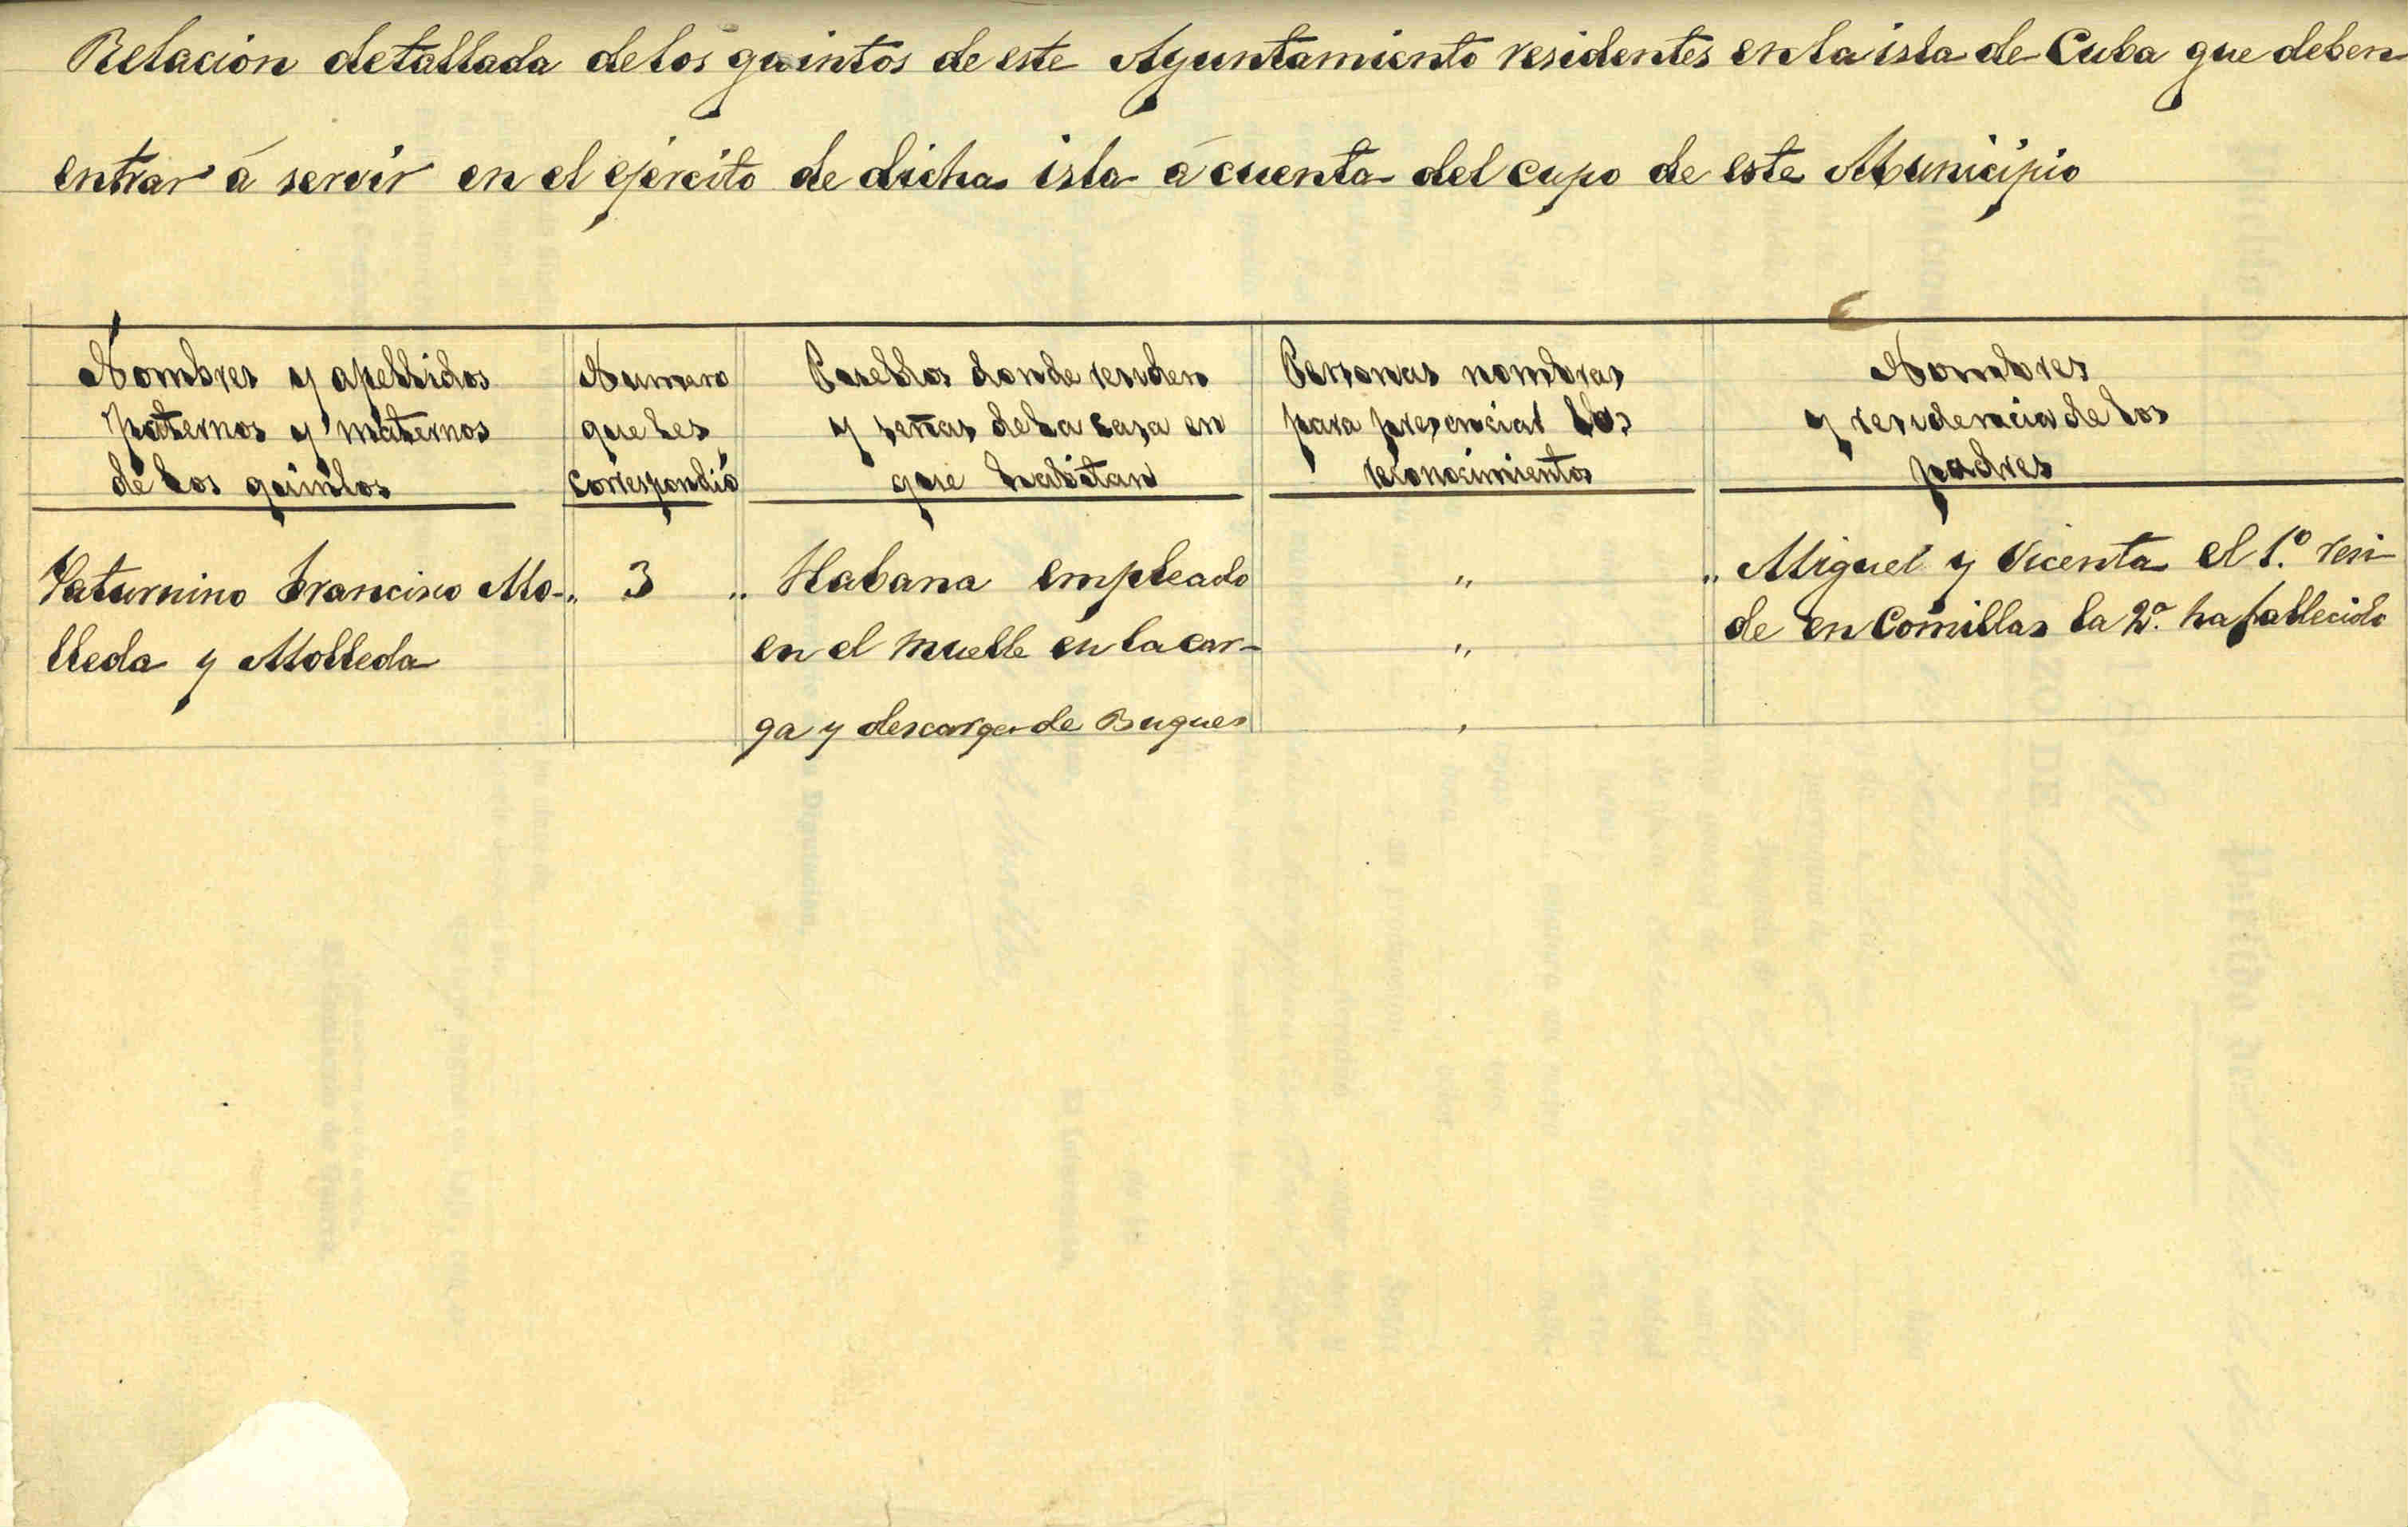 Relación detallada de los quintos de este Ayuntamiento residentes en la isla de Cuba que deben
entrar á servir en el ejército de dicha isla á cuenta del cupo de este Municipio
Nombres y apellidos
paternos y maternos
de los quintos
Numero
que les
correspondió
Pueblos donde residen
y señas de la casa en
que habitan
Personas nombras
para presenciar los
reconocimientos
Nombres
y residencia de los
padres
Saturnino Francisco Mo-
lleda y Molleda
" 3 "
Habana empleado
en el muelle en la car-
ga y descarga de Buques
"
"
"
" Miguel y Vicenta el 1.º resi
de en Comillas la 2.ª ha fallecido